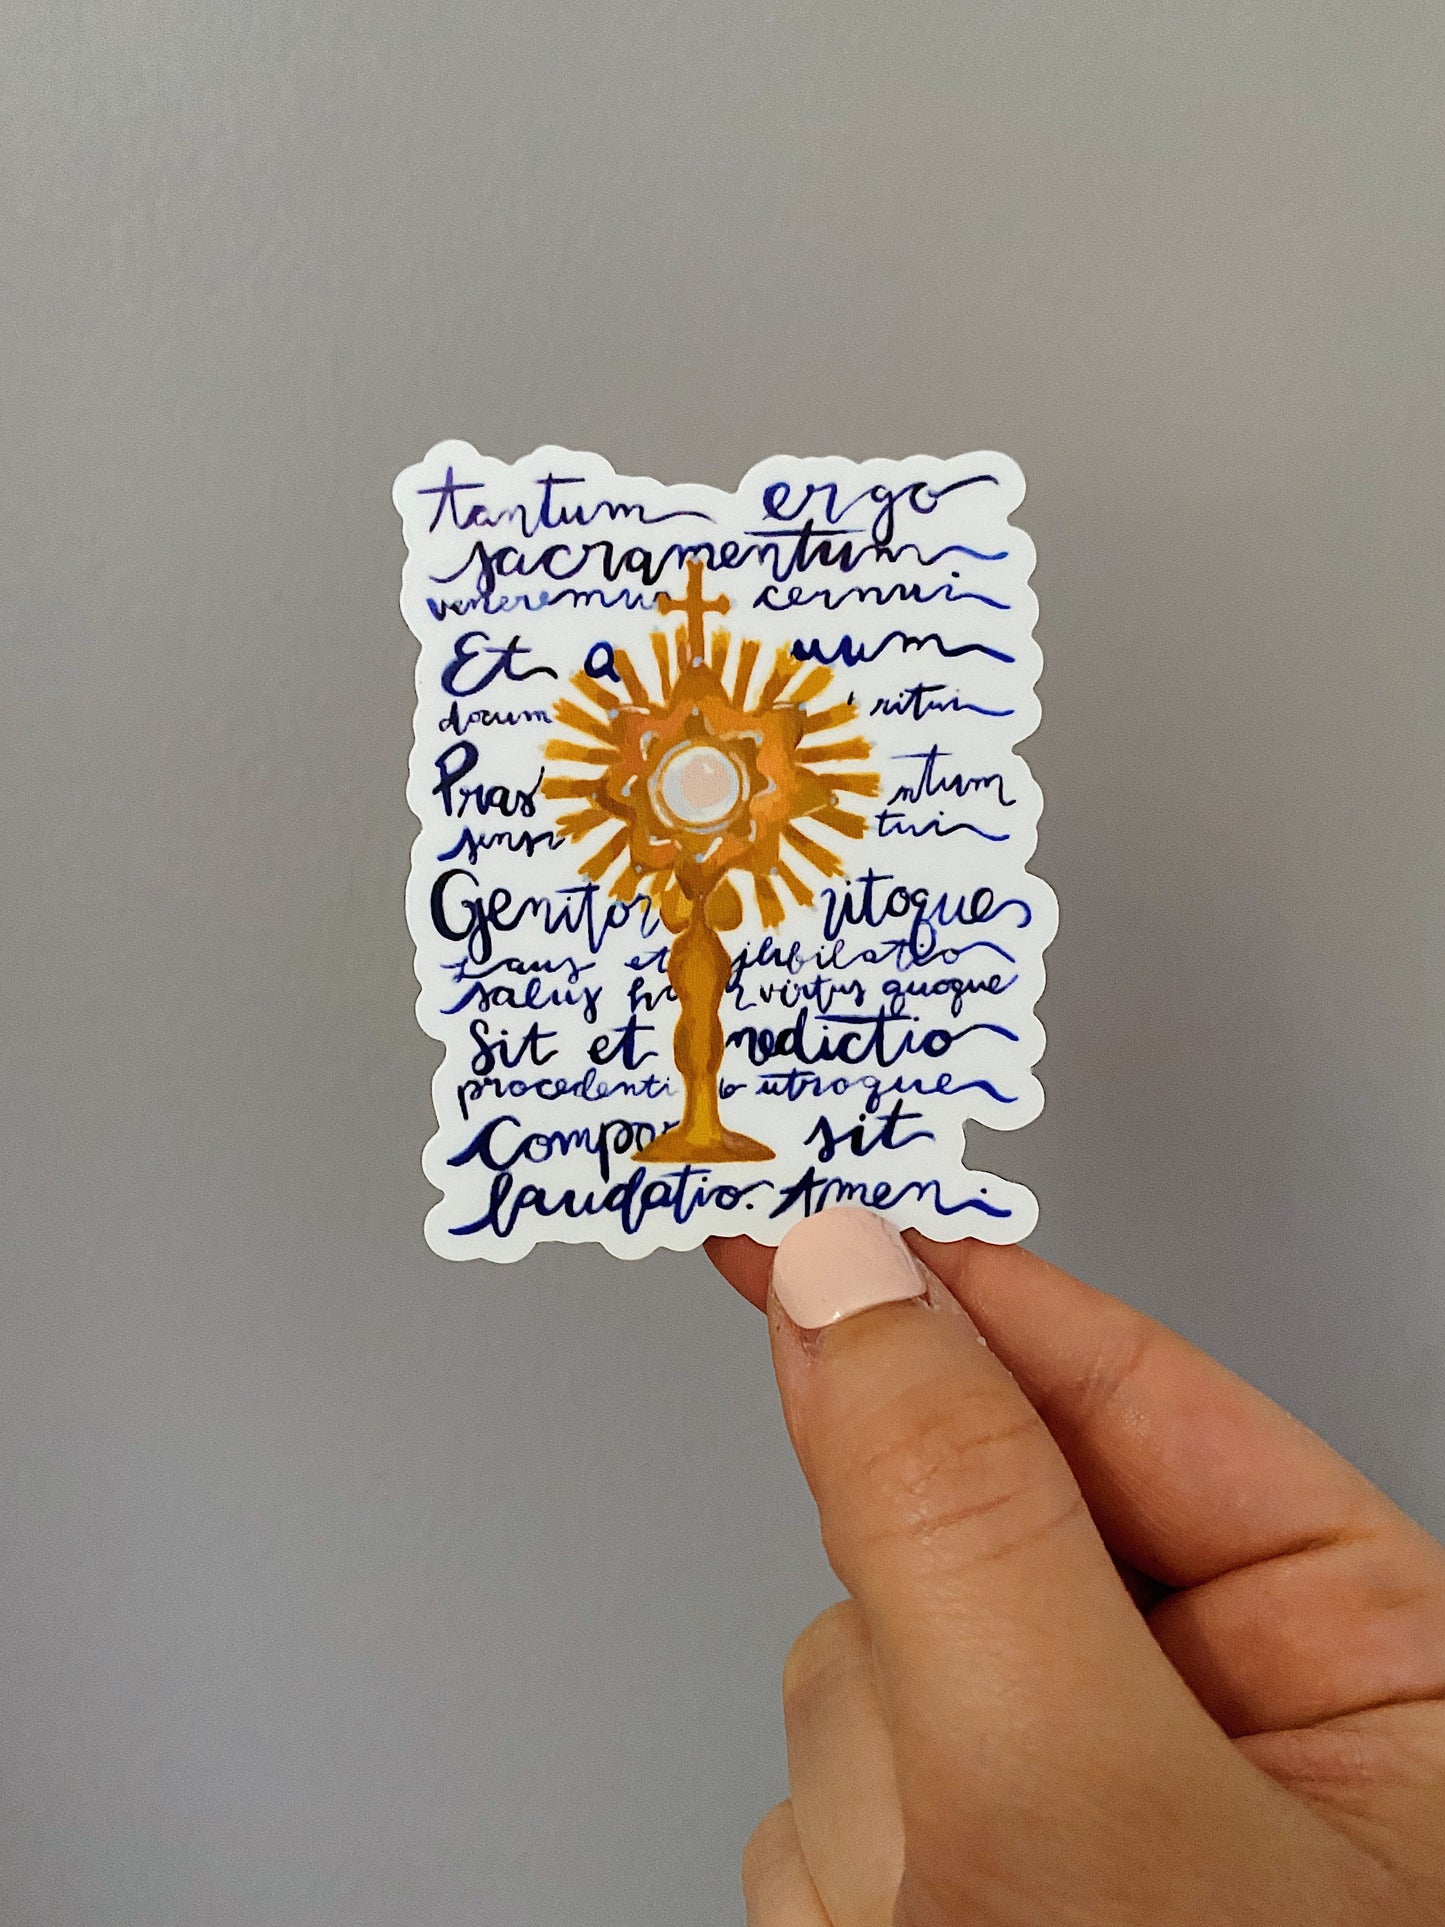 tantum ergo
sacramentum
veneremus cernui
Et a uum
docum ritui
Pras ntum
sensu tui
Genitor itoque
Laus et jubilatio
salus ho r virtus quoque
Sit et nedictio
procedenti b utroque
Compar sit
laudatio. Amen.